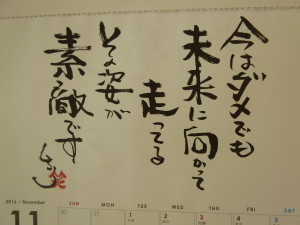 今はダメでも
未来に向かって
走ってる
その姿が
素敵です
2016 / November
11
SUN MON TUE WED THU FRI SAT
30 31 1 2 3 4 5